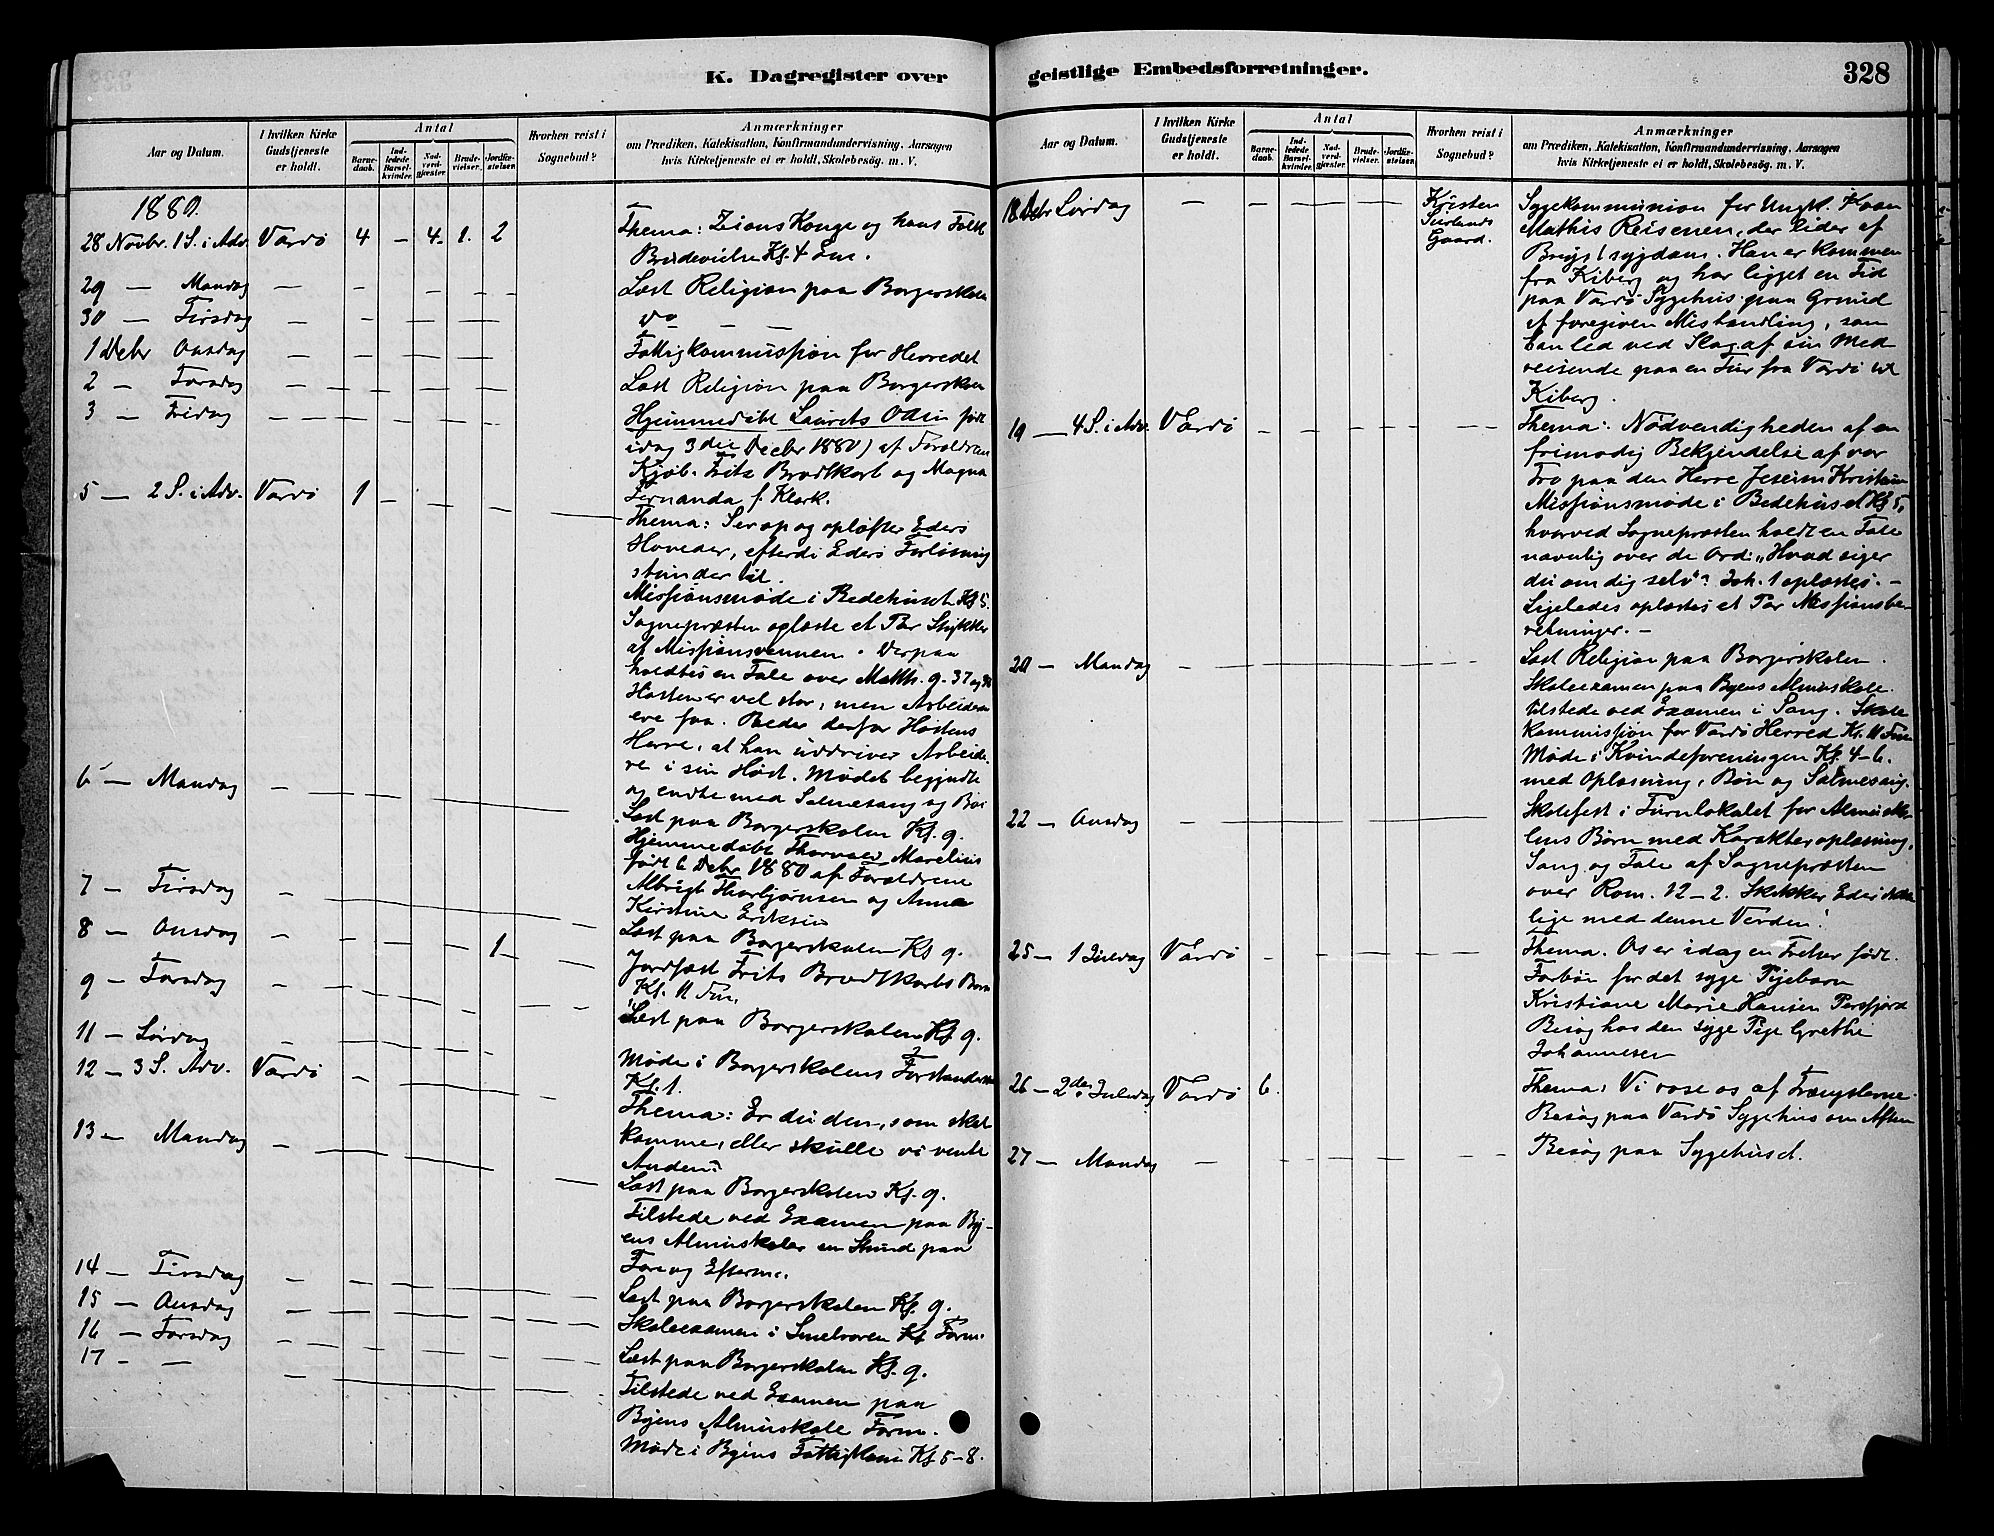 K. Dagregister over
geistlige Embedsforretninger.
328
Aar og Datum.
I hvilken Kirke Gudstjeneste er holdt.
Antal
Barnedaab.
Indledede Barselkvinder.
Nadverdgjæster.
Brudevielser.
Jordfæstelser.
Hvorhen reist i Sognebud?
Anmærkninger
om Prædiken, Katekisation, Konfirmandundervisning, Aarsagen
hvis Kirketjeneste ei er holdt, Skolebesög. m. V.
1880.
28 Novbr. 1 S. i Adv. Vardö 4 — 4. 1. 2
Thema: Zions Konge og hans Folk
Brudevielse Kl. 4 Em.
29 — Mandag — — — — — —
Læst Religion paa Borgerskolen
30 — Tirsdag — — — — — —
do — —
1 Debr Onsdag — — — — — —
Fattigkommission for Herredet
2 — Torsdag — — — — — —
Læst Religion paa Borgerskolen
3 — Fredag — — — — — —
Hjemmedöbt Laurits Odin född
idag 3die Decbr 1880) af Forældrene
Kjöb. Frits Brodtkorb og Magna
Fernanda f. Klerk.
5 — 2 S. i Adv. Vardö 1 — — — — —
Thema: Ser op og oplöfter Eders
Hoveder, efterdi Eders Forlösning
stunder til.
Missionsmöde i Bedehuset Kl 5.
Sognepræsten oplæste et Par Stykker
af Missionsvennen. Derpaa
holdtes en Tale over Matth. 9. 37 og 38
Hösten er vel stor, men Arbeiderne
ere faa. Beder derfor Höstens
Herre, at han uddriver Arbeide-
re i sin Höst. Mödet begyndte
og endte med Salmesang og Bön
6 — Mandag — — — — — —
Læst paa Borgerskolen Kl. 9.
Hjemmedöbt Thorvald Marelius
född 6 Debr 1880 af Forældrene
Albrigt Thorbjörnsen og Anna
Kirstine Eriksen
7 — Tirsdag — — — — — —
Læst paa Borgerskolen Kl 9.
8 — Onsdag — — — — 1 —
Jordfæst Frits Brodtkorbs Barn
Kl. 11 Fm.
9 — Torsdag — — — — — —
Læst paa Borgerskolen Kl 9.
11 — Lördag — — — — — —
Möde i Borgerskolens Forstanderskab
Kl. 1.
12 — 3 S. Adv. Vardö — — — — —
Thema: Er du den, som skal
komme, eller skulle vi vente
Anden?
13 — Mandag — — — — — —
Læst paa Borgerskolen Kl. 9.
Tilstede ved Examen paa By-
ens Almueskole en Stund paa
For og Efterm.
14 — Tirsdag — — — — — —
Læst paa Borgerskolen Kl. 9.
15 — Onsdag — — — — — —
Skoleexamen i Smelroren Kl Form.
16 — Torsdag — — — — — —
Læst paa Borgerskolen Kl. 9.
17 — — — — — — — —
Tilstede ved Examen paa
Byens Almueskole Form.
Möde i Byens Fattigkom Kl 5-8.
Aar og Datum.
I hvilken Kirke Gudstjeneste er holdt.
Antal
Barnedaab.
Indledede Barselkvinder.
Nadverdgjæster.
Brudevielser.
Jordfæstelser.
Hvorhen reist i Sognebud?
Anmærkninger
om Prædiken, Katekisation, Konfirmandundervisning, Aarsagen
hvis Kirketjeneste ei er holdt, Skolebesög. m. V.
18 Debr Lördag — — — — — —
Kristen
Gaard.
Sygekommunion for Ungk.
Mathis Reisenen, der lider af
Brigs (sygdom. Han er kommen
fra Kiberg og har ligget en Tid
paa Vardö Sygehus paa Grund
af foregiven Mishandling, som
han led ved Slag af sin Med
reisende paa en Tur fra Vardö til
Kiberg.
19 — 4 S. i Adv. Vardö — — — — — —
Thema: Nödvendigheden af en
frimodig Bekjendelse af vor
Tro paa den Herre Jesum Kristum
Missionsmöde i Bedehuset Kl 5,
hvorved Sognepræsten holdt en Tale
navnlig over de Ord: „Hvad siger
du om dig selv"? Joh. 1 oplæstes. —
Ligeledes oplæstes et Par Missionsbe-
retninger. —
20 — Mandag — — — — — —
Læst Religion paa Borgerskolen.
Skoleexamen paa Byens Almueskole.
tilstede ved Examen i Sang. Skole
kommission for Vardö Herred Kl. 11 Fm
Möde i Kvindeforeningen Kl. 4-6.
med Oplæsning, Bön og Salmesang.
22 — Onsdag — — — — — —
Skolefest i Turnlokalet for Almuesko-
lens Börn med Karakteroplæsning,
Sang og Tale af Sognepræsten
over Rom. 12-2. Skikker Eder ikke
lige med denne Verden!
25 — 1 Juledag Vardö — — — — — —
Thema. Os er idag en Frelser född.
Forbön for det syge Pigebarn
Kristiane Marie Hansen Persfjord
Besög hos den syge Pige Grethe
Johannesen
26 — 2den Juledag Vardö 6.
Thema: Vi rose os af Trængslerne.
Besög paa Vardö Sygehus om Aften
27 — Mandag — — — — — —
Besög paa Sygehuset.